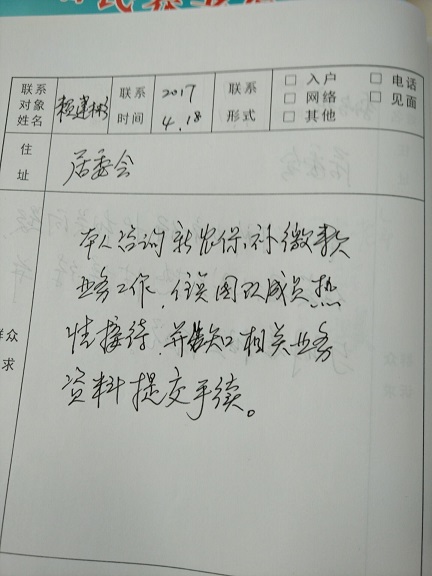 联系对象姓名 赖建彬 联系时间 2017 4.18 联系形式 □ 入户 □ 电话 □ 网络 □ 见面 □ 其他
住址 居委会
群众
求
本人咨询新农保补缴款
业务工作,住误团队成员热
情接待,并告知相关业务
资料提交手续。